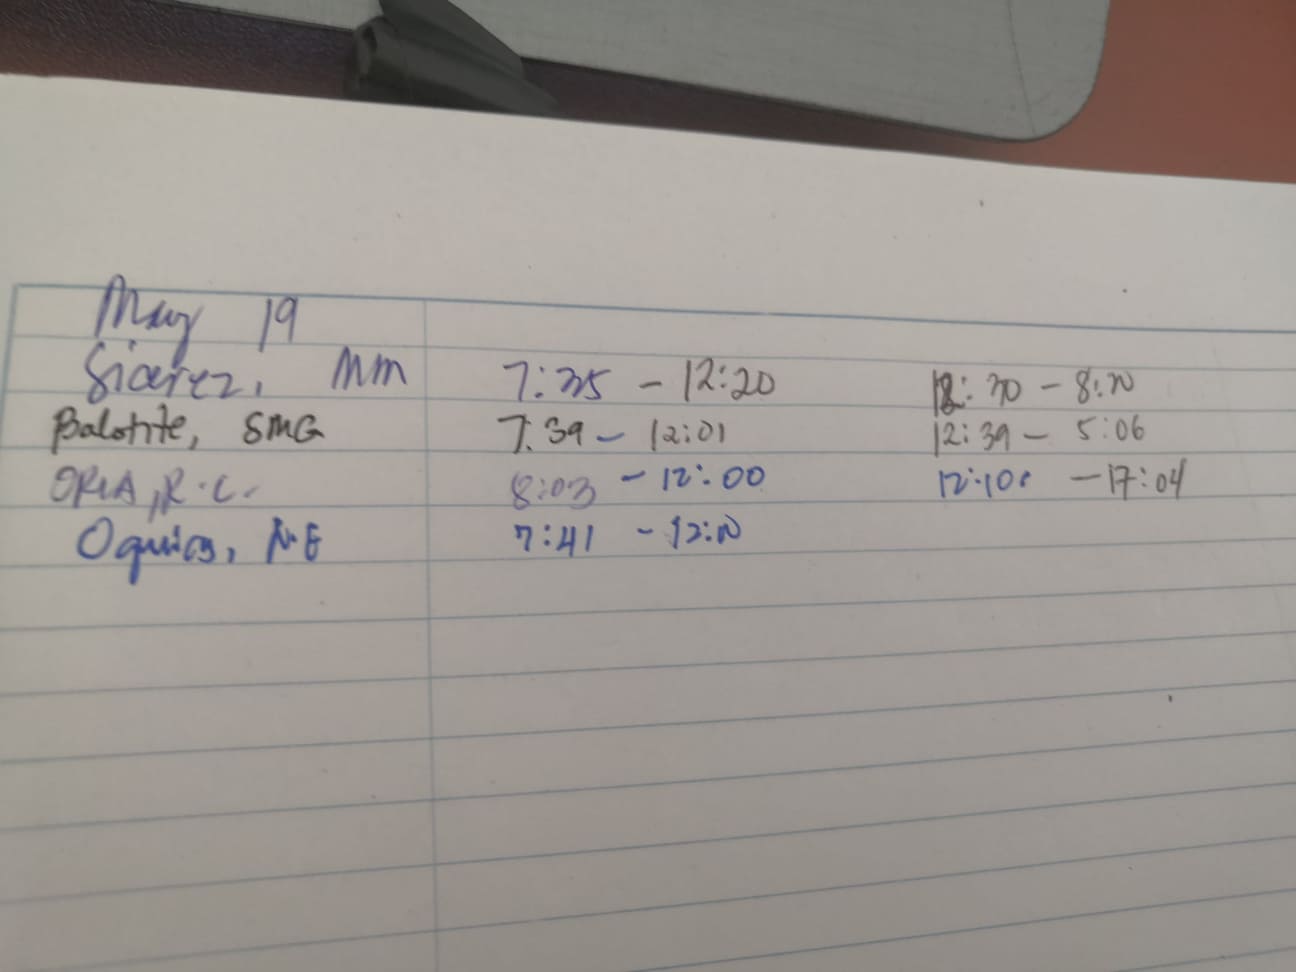 May 19
Sicerez, MM 7:35 - 12:20 12:30 - 8:20
Balotite, SMG 7:39 - 12:01 12:39 - 5:06
ORIA, R.C. 8:03 - 12:00 12:10 - 17:04
NE 7:41 - 12:10